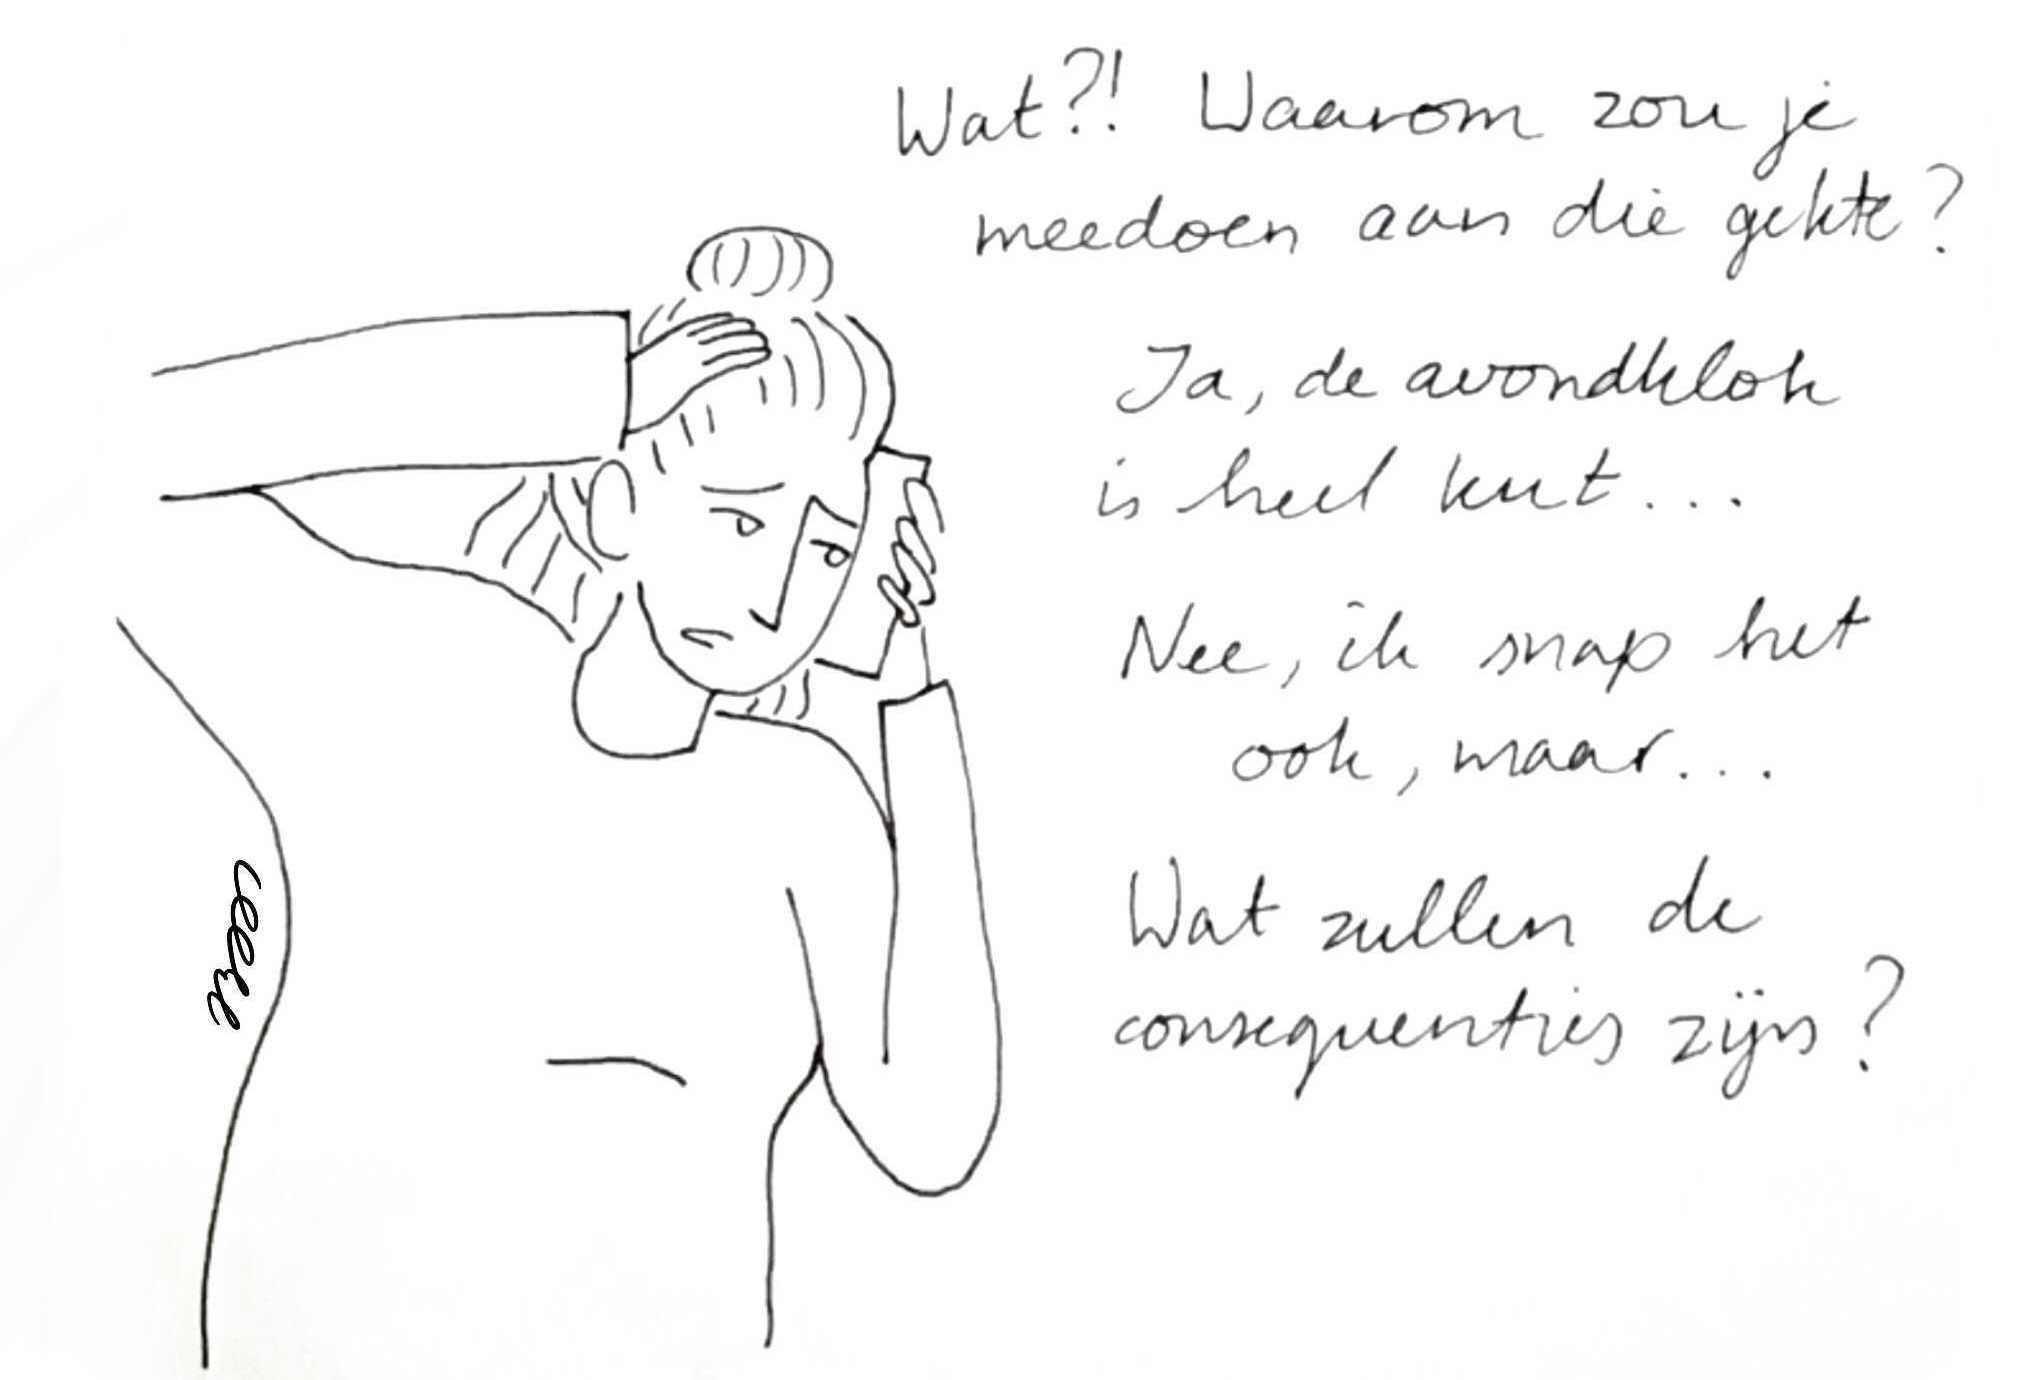 Wat?! Waarom zou je
meedoen aan die gekte?
Ja, de avondklok
is heel kut...
Nee, ik snap het
ook, maar...
Wat zullen de
consequenties zijn?